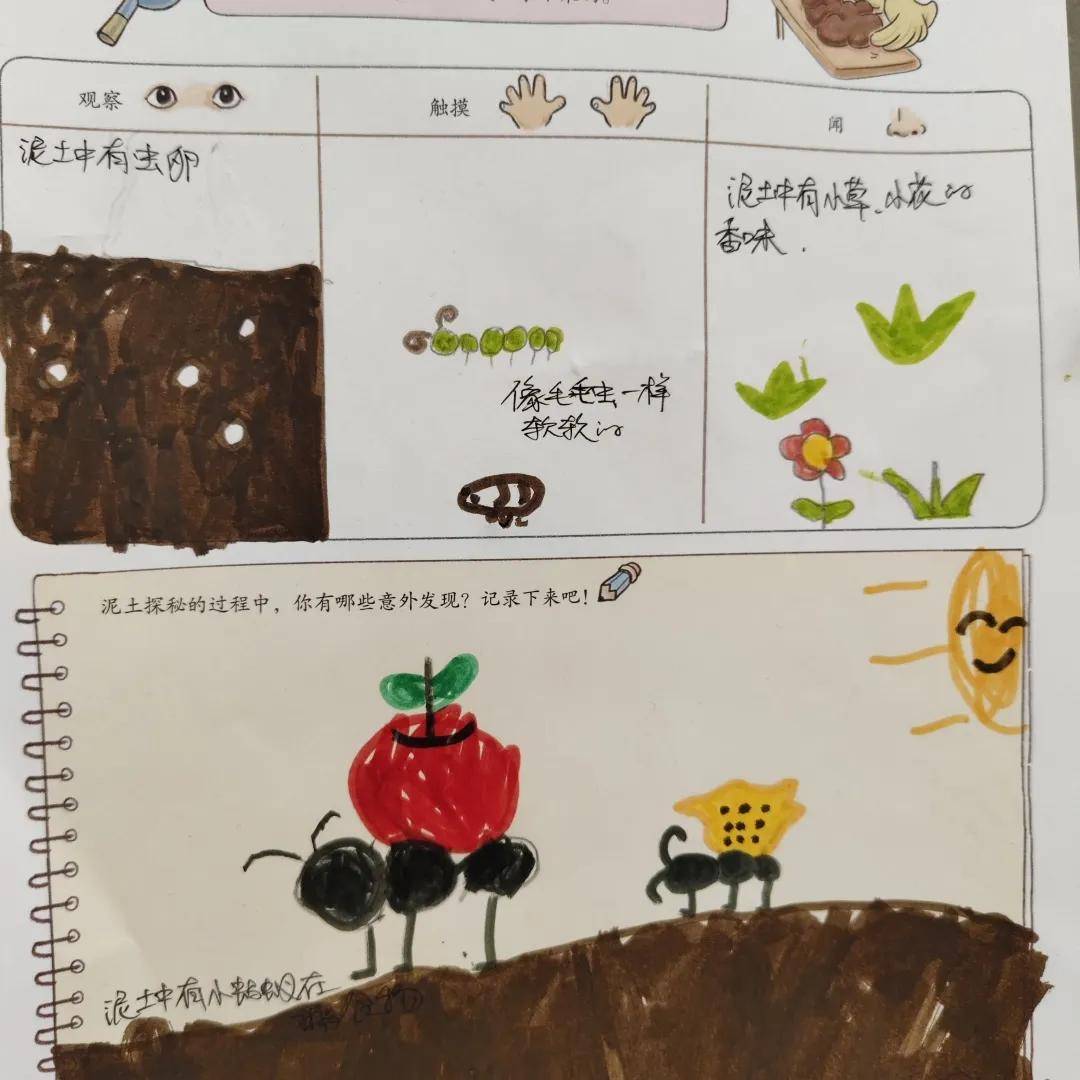 观察
触摸
闻
泥土中有虫卵
像毛毛虫一样
软软的
泥土中有小草、小花的
香味.
泥土探秘的过程中，你有哪些意外发现？记录下来吧！
泥土中有小蚂蚁在
食物